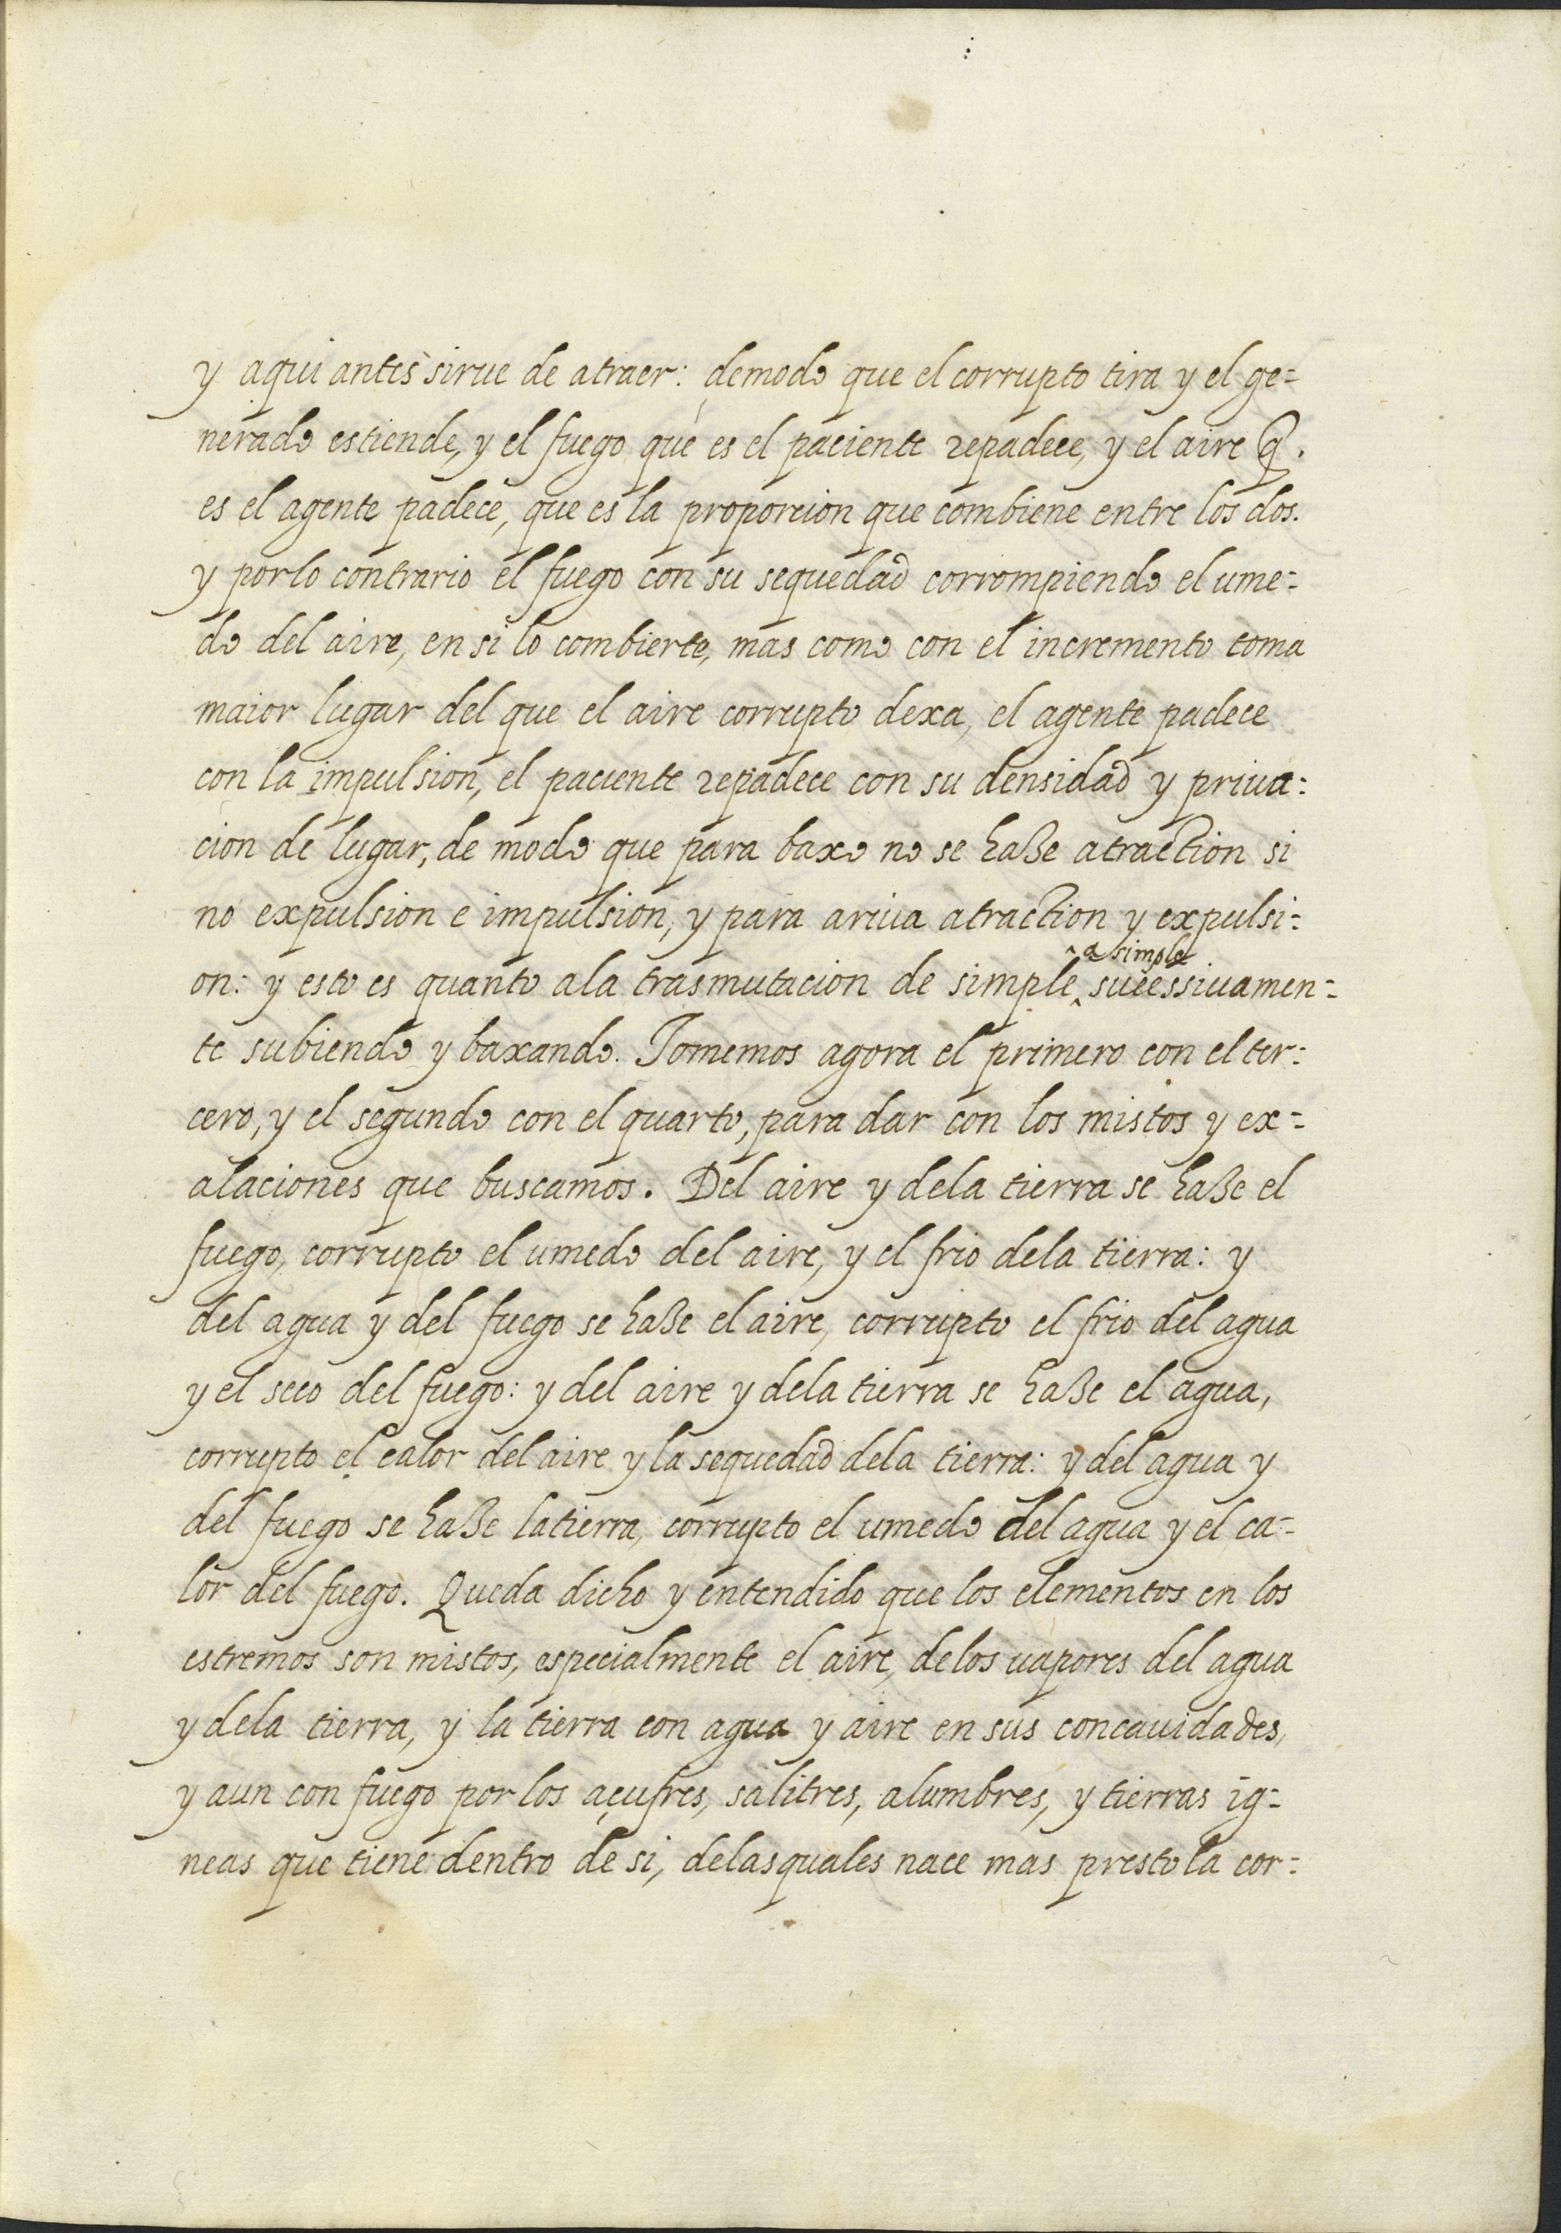 y aqui antes sirue de atraer: demodo que el corrupto tira y el ge=
nerado estiende, y el fuego que es el paciente repadece, y el aire q̃.
es el agente padece, que es la proporcion que combiene entre los dos.
y porlo contrario el fuego con su sequedad corrompiendo el ume=
do del aire, en si lo combierte, mas como con el incremento toma
maior lugar del que el aire corrupto dexa, el agente padece
con la impulsion, el paciente repadece con su densidad y priua=
cion de lugar, de modo que para baxo no se haze atraction si
no expulsion e impulsion, y para ariua atraction y expulsi=
on: y esto es quanto ala trasmutacion de simple ^a simple sucessiuamen=
te subiendo y baxando. Tomemos agora el primero con el ter=
cero, y el segundo con el quarto, para dar con los mistos y ex=
alaciones que buscamos. Del aire y dela tierra se haze el
fuego, corrupto el umedo del aire, y el frio dela tierra: y
del agua y del fuego se haze el aire, corrupto el frio del agua
y el seco del fuego: y del aire y dela tierra se haze el agua,
corrupto el calor del aire y la sequedad dela tierra: y del agua y
del fuego se haze latierra, corrupto el umedo del agua y el ca=
lor del fuego. Queda dicho y entendido que los elementos en los
estremos son mistos, especialmente el aire, delos uapores del agua
y dela tierra, y la tierra con agua y aire en sus concauidades,
y aun con fuego por los açufres, salitres, alumbres, y tierras ig=
neas que tiene dentro de si, delasquales nace mas presto la cor=